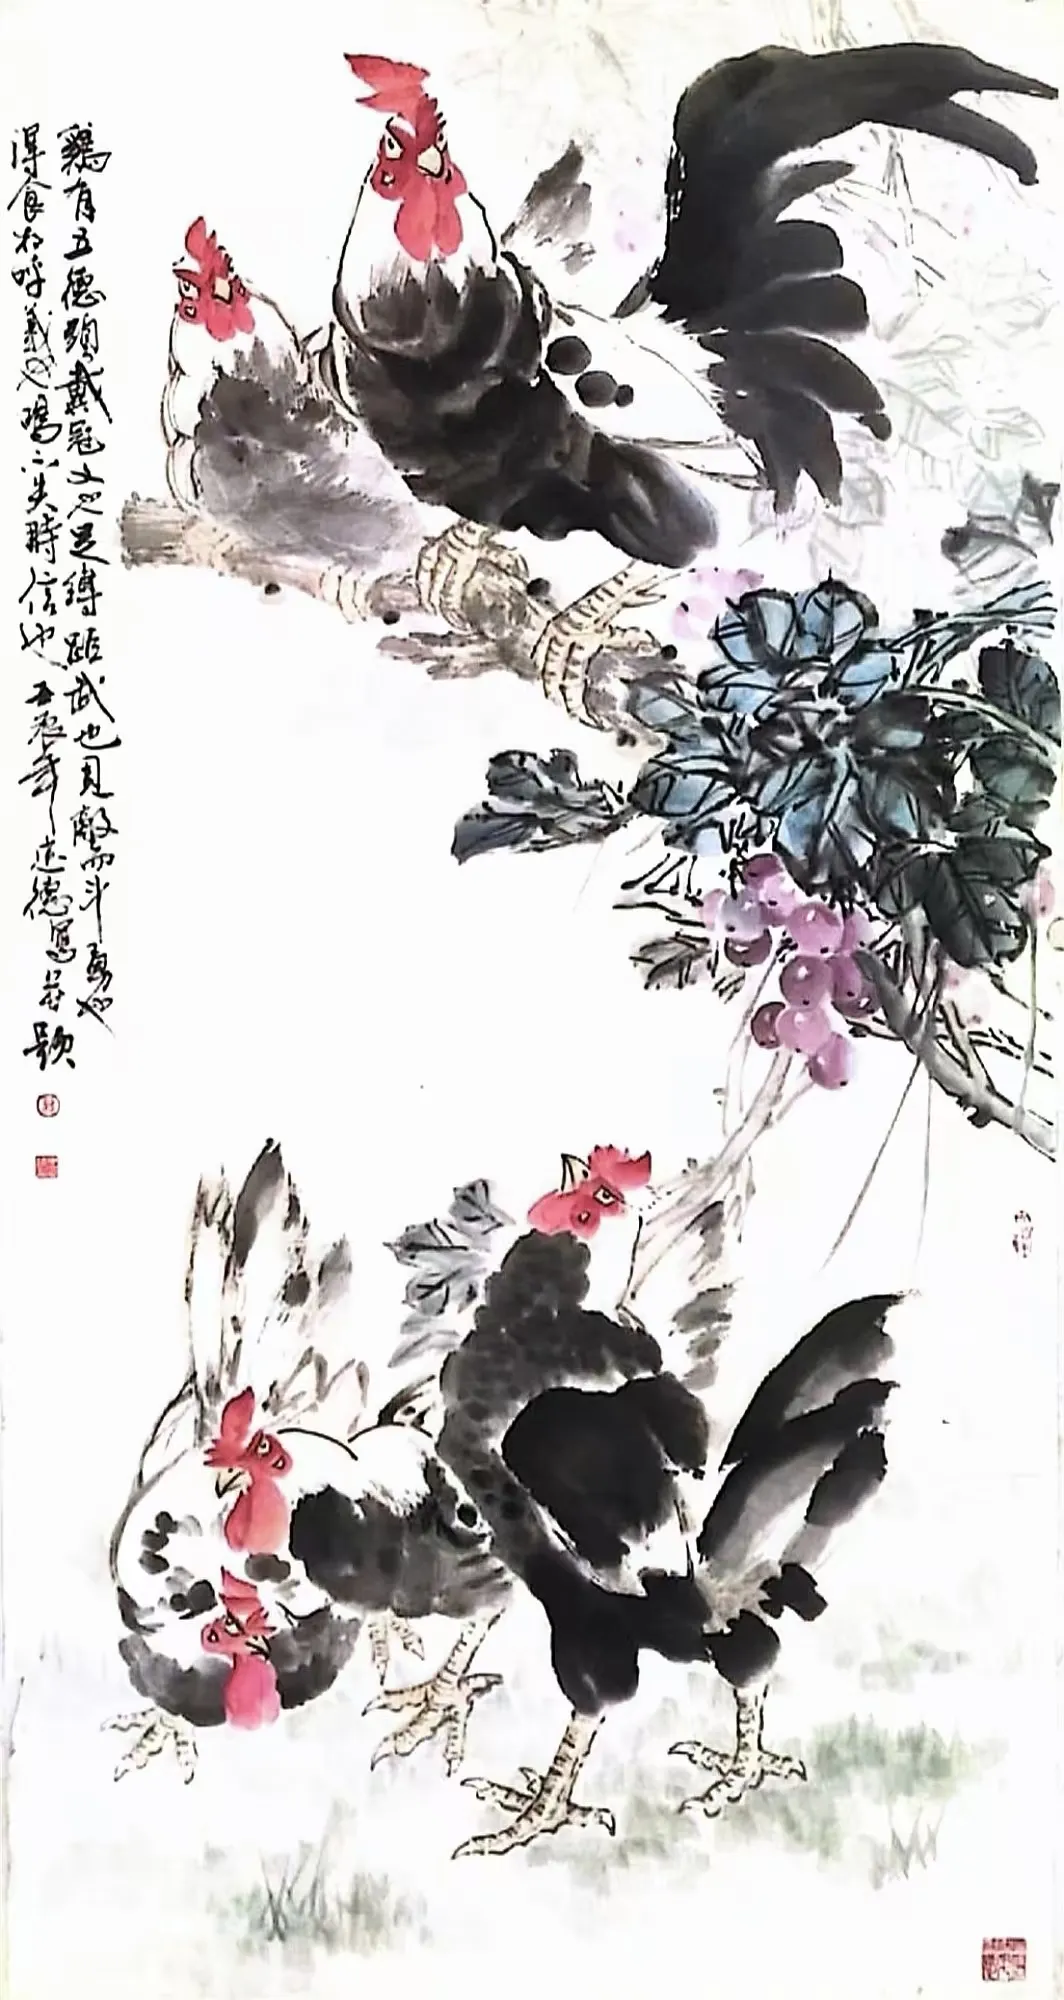 鷄有五德頭戴冠文也足縛距武也見敵而斗勇也
得食相呼義也鳴不失時信也壬辰年德寫並題